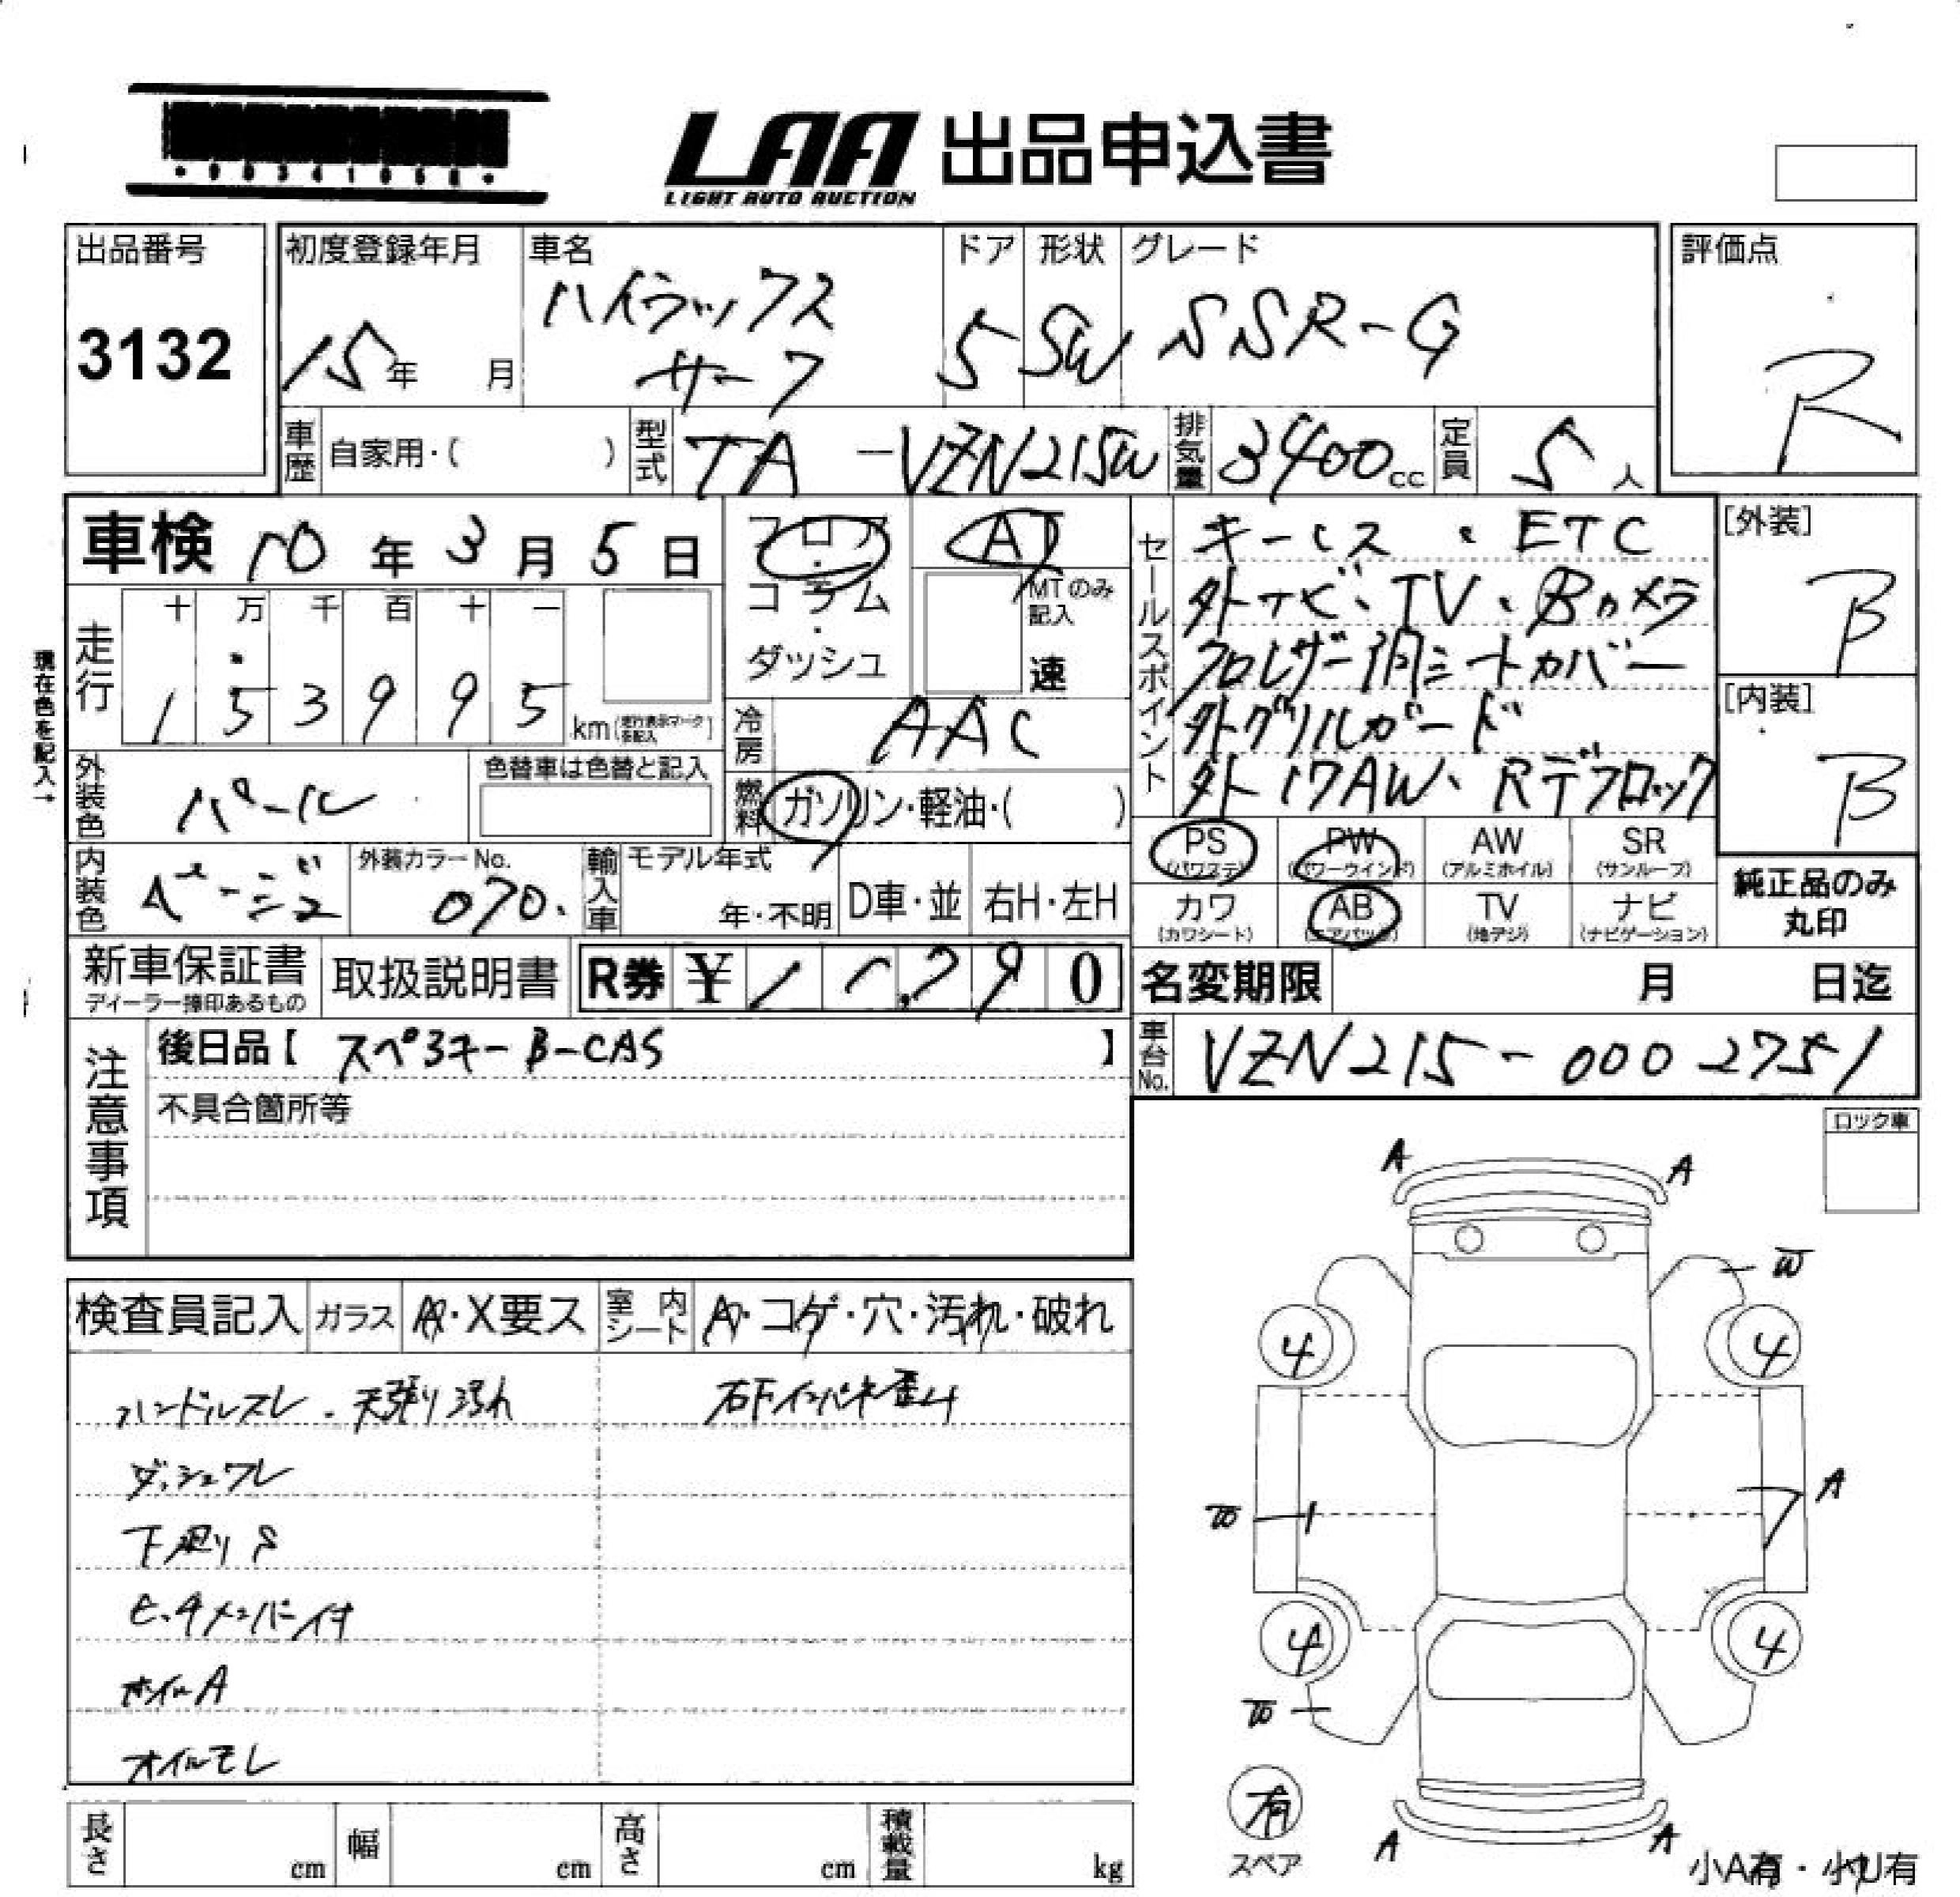 LAA 出品申込書
LIGHT AUTO AUCTION
出品番号
3132
初度登録年月
15年 月
車名
ハイラックス
サーフ
ドア
5
形状
SW
グレード
SSR-G
評価点
R
車歴 自家用・( )
型式 TA-VZN215W
排気量 3400cc
定員 5人
車検 10年3月5日
フロア・コラム・ダッシュ
AT
MTのみ記入
速
セールスポイント
キーレス、ETC
外ナビ、TV、Bカメラ
クロレザー調シートカバー
外グリルガード
外17AW、Rデフロック
[外装]
B
[内装]
B
現在色を記入→
走行
十 万 千 百 十 一
1 5 3 9 9 5 km (走行表示マークを記入)
冷房 AAC
外装色 パール
色替車は色替と記入
燃料 ガソリン・軽油・( )
内装色 ベージュ
外装カラーNo.
070.
輸入車
モデル年式
年・不明
D車・並
右H・左H
PS (パワステ)
PW (パワーウインド)
AW (アルミホイル)
SR (サンルーフ)
カワ (カワシート)
AB (エアバック)
TV (地デジ)
ナビ (ナビゲーション)
純正品のみ
丸印
新車保証書
ディーラー捺印あるもの
取扱説明書
R券 ¥
790
名変期限 月 日迄
注意事項
後日品【 スペアキー B-CAS 】
不具合箇所等
車台No. VZN215-0002751
ロック車
検査員記入
ガラス A・X要ス
室内シート A・コゲ・穴・汚れ・破れ
ハンドルスレ、天張り汚れ
右Fインパネ歪み
ダッシュワレ
下廻りS
ヒッチメンバー付
ホイルA
オイルモレ
A A
W
4 4
A
W
4 4
W
有
スペア
A A
小A有・小U有
長さ cm
幅 cm
高さ cm
積載量 kg